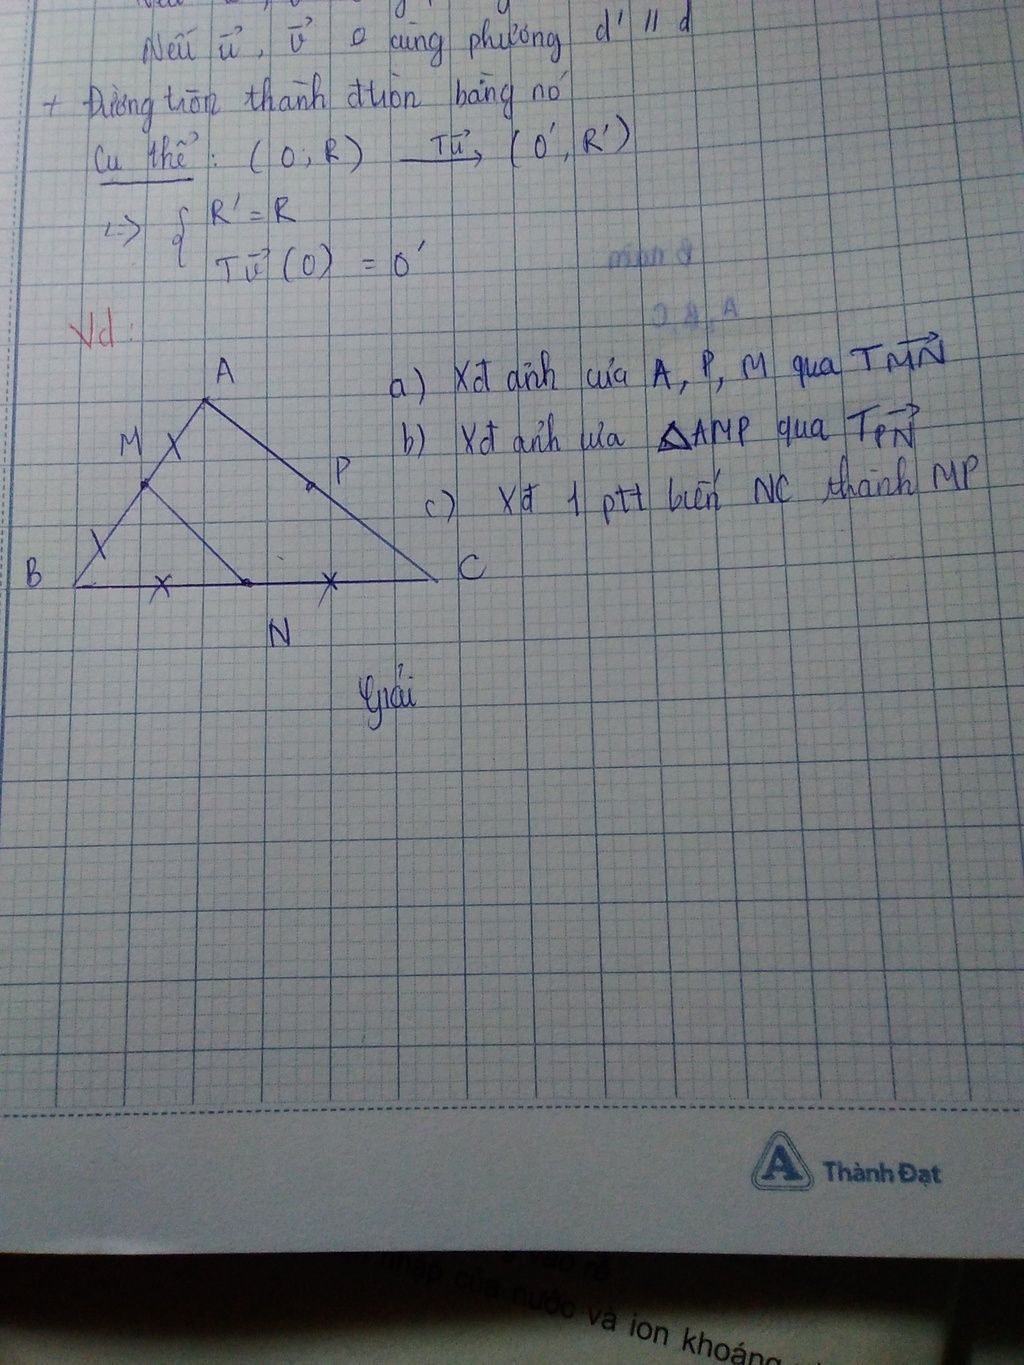 Nếu u⃗, v⃗ 0 cùng phương d' // d
+ Đường tròn thành đtròn bằng nó
Cụ thể : (O, R) Tv⃗ (O', R')
<=> { R' = R
Tv⃗ (O) = O'
Vd :
A
M
P
B
C
N
a) Xđ ảnh của A, P, M qua T MN⃗
b) Xđ ảnh của △AMP qua T PN⃗
c) Xđ 1 ptt biến NC thành MP
Giải
A Thành Đạt
của nước và ion khoáng